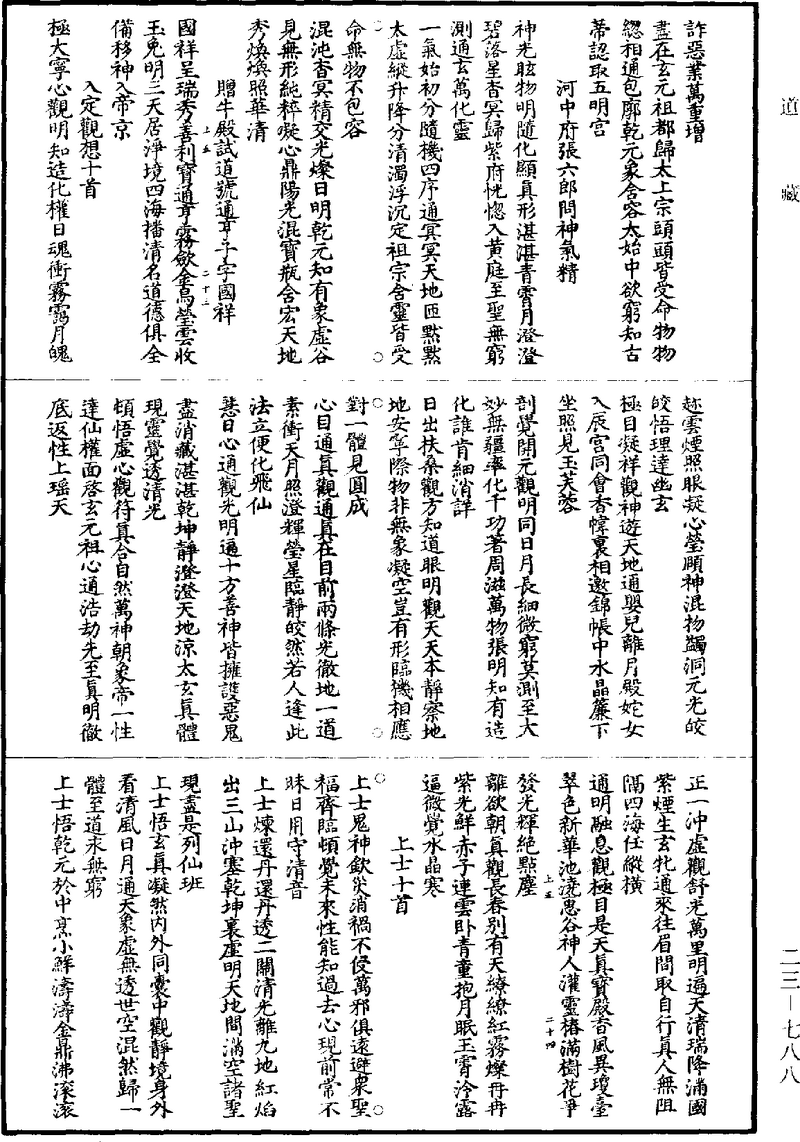 道藏
詐惡業萬重增
盡在玄元祖都歸太上宗頭頭皆受命物物
緫相通包廓乾元象含容太始中欲窮知古
蒂認取五明宫
河中府張六郎問神氣精
神光眩物明隨化顯真形湛湛青霄月澄澄
碧落星杳冥歸紫府恍惚入黄庭至聖無窮
測通玄萬化靈
一氣始初分隨機四序通冥冥天地匝黙黙
太虚縱升降分清濁浮沉定祖宗含靈皆受
命無物不包容
混沌杳冥精交光燦日明乾元知有象虚谷
見無形純粹凝心鼎陽光混寶瓶含宏天地
秀煥煥照華清
贈牛殿試道號通亨子字國祥
上五
二十三
國祥呈瑞秀善利寶通亨霧斂金烏瑩雲收
玉兔明三天居淨境四海播清名道德俱全
備移神入帝京
入定觀想十首
極大寧心觀明知造化權日魂衝霧靄月魄
趂雲煙照眼凝心瑩頤神混物蠲洞元光皎
皎悟理達幽玄
極目凝祥觀神遊天地通嬰兒離月殿姹女
入辰宫同會杳幃裏相邀錦帳中水晶簾下
坐照見玉芙蓉
剖覺開元觀明同日月長細微窮莫測至大
妙無疆率化千功著周滋萬物張明知有造
化誰肯細消詳
日出扶桑觀方知道眼明觀天天本靜察地
地安寧際物非無象凝空豈有形臨機相應
對一體見圓成
心目通真觀通真在目前兩條光徹地一道
素衝天月照澄輝瑩星臨靜皎然若人逢此
法立便化飛仙
慧日心通觀光明遍十方善神皆擁護惡鬼
盡消藏湛湛乾坤靜澄澄天地涼太玄真體
現靈覺透清光
頓悟虚心觀符真合自然萬神朝象帝一性
達仙權面啓玄元祖心通浩劫先至真明徹
底返性上瑶天
正一沖虚觀舒光萬里明遍天清瑞降滿國
紫煙生玄牝通來往眉間取自行真人無阻
隔四海任縱横
通明融息觀極目是天真寳殿杳風異瓊臺
翠色新華池澆思谷神人灌靈椿滿樹花爭
上五
二十四
發光輝絶點塵
離欲朝真觀長春别有天繚繚紅霧燦冉冉
紫光鮮赤子連雲卧青童抱月眠玉霄泠露
逼微覺水晶寒
上士十首
上士鬼神欽災消禍不侵萬邪俱遠避衆聖
福齊臨頓覺未來性能知過去心現前常不
昧日用守清音
上士煉還丹還丹透二關清光離九地紅焰
出三山沖塞乾坤裏虚明天地間滿空諸聖
現盡是列仙班
上士悟玄真凝然内外同囊中觀靜境身外
看清風日月通天象虚無透世空混然歸一
體至道永無窮
上士悟乾元於中烹小鮮濤濤金鼎沸滚滚
二三—七八八